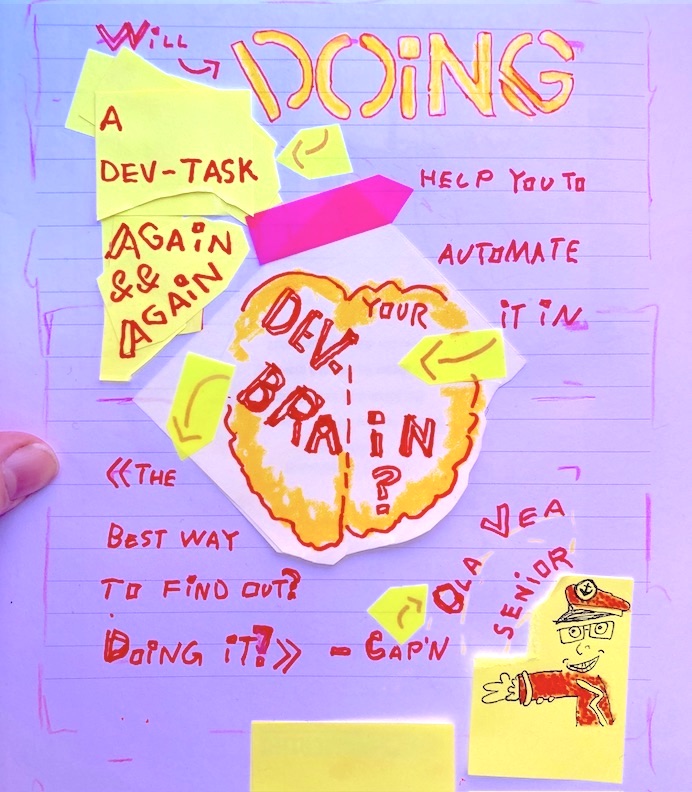 WiLL
DOiNG
A
DEV-TASK
AGAiN
&&
AGAiN
HELP YOU TO
AUTOMATE
iT iN
YOUR
DEV.
BRAiN
?
«THE
BEST WAY
TO FiND OUT?
DOiNG iT?» - CAP'N
OLA VEA
SENiOR